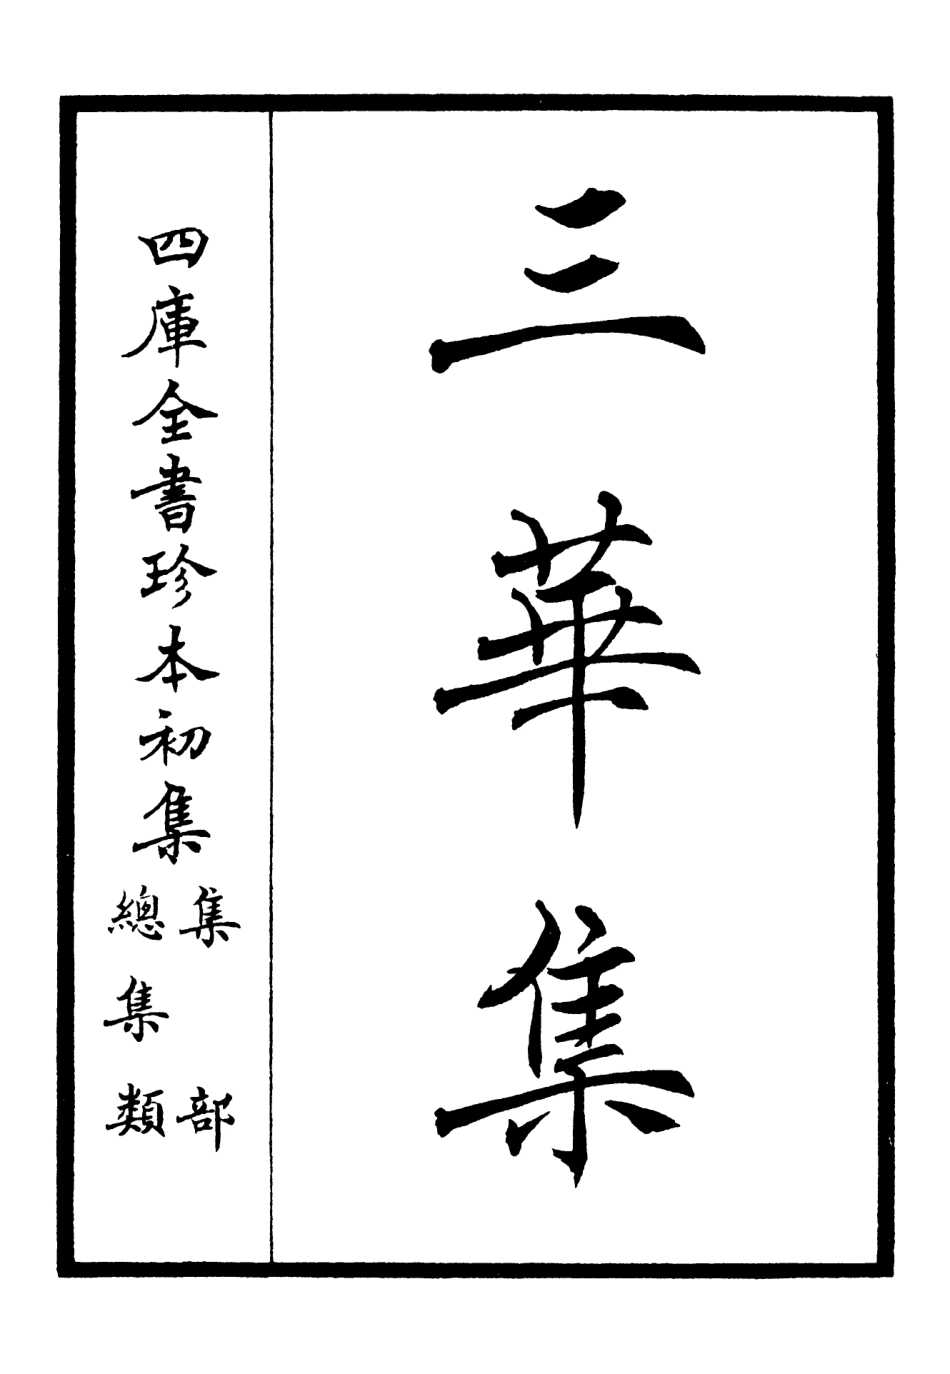 三華集
四庫全書珍本初集
集部
總集類